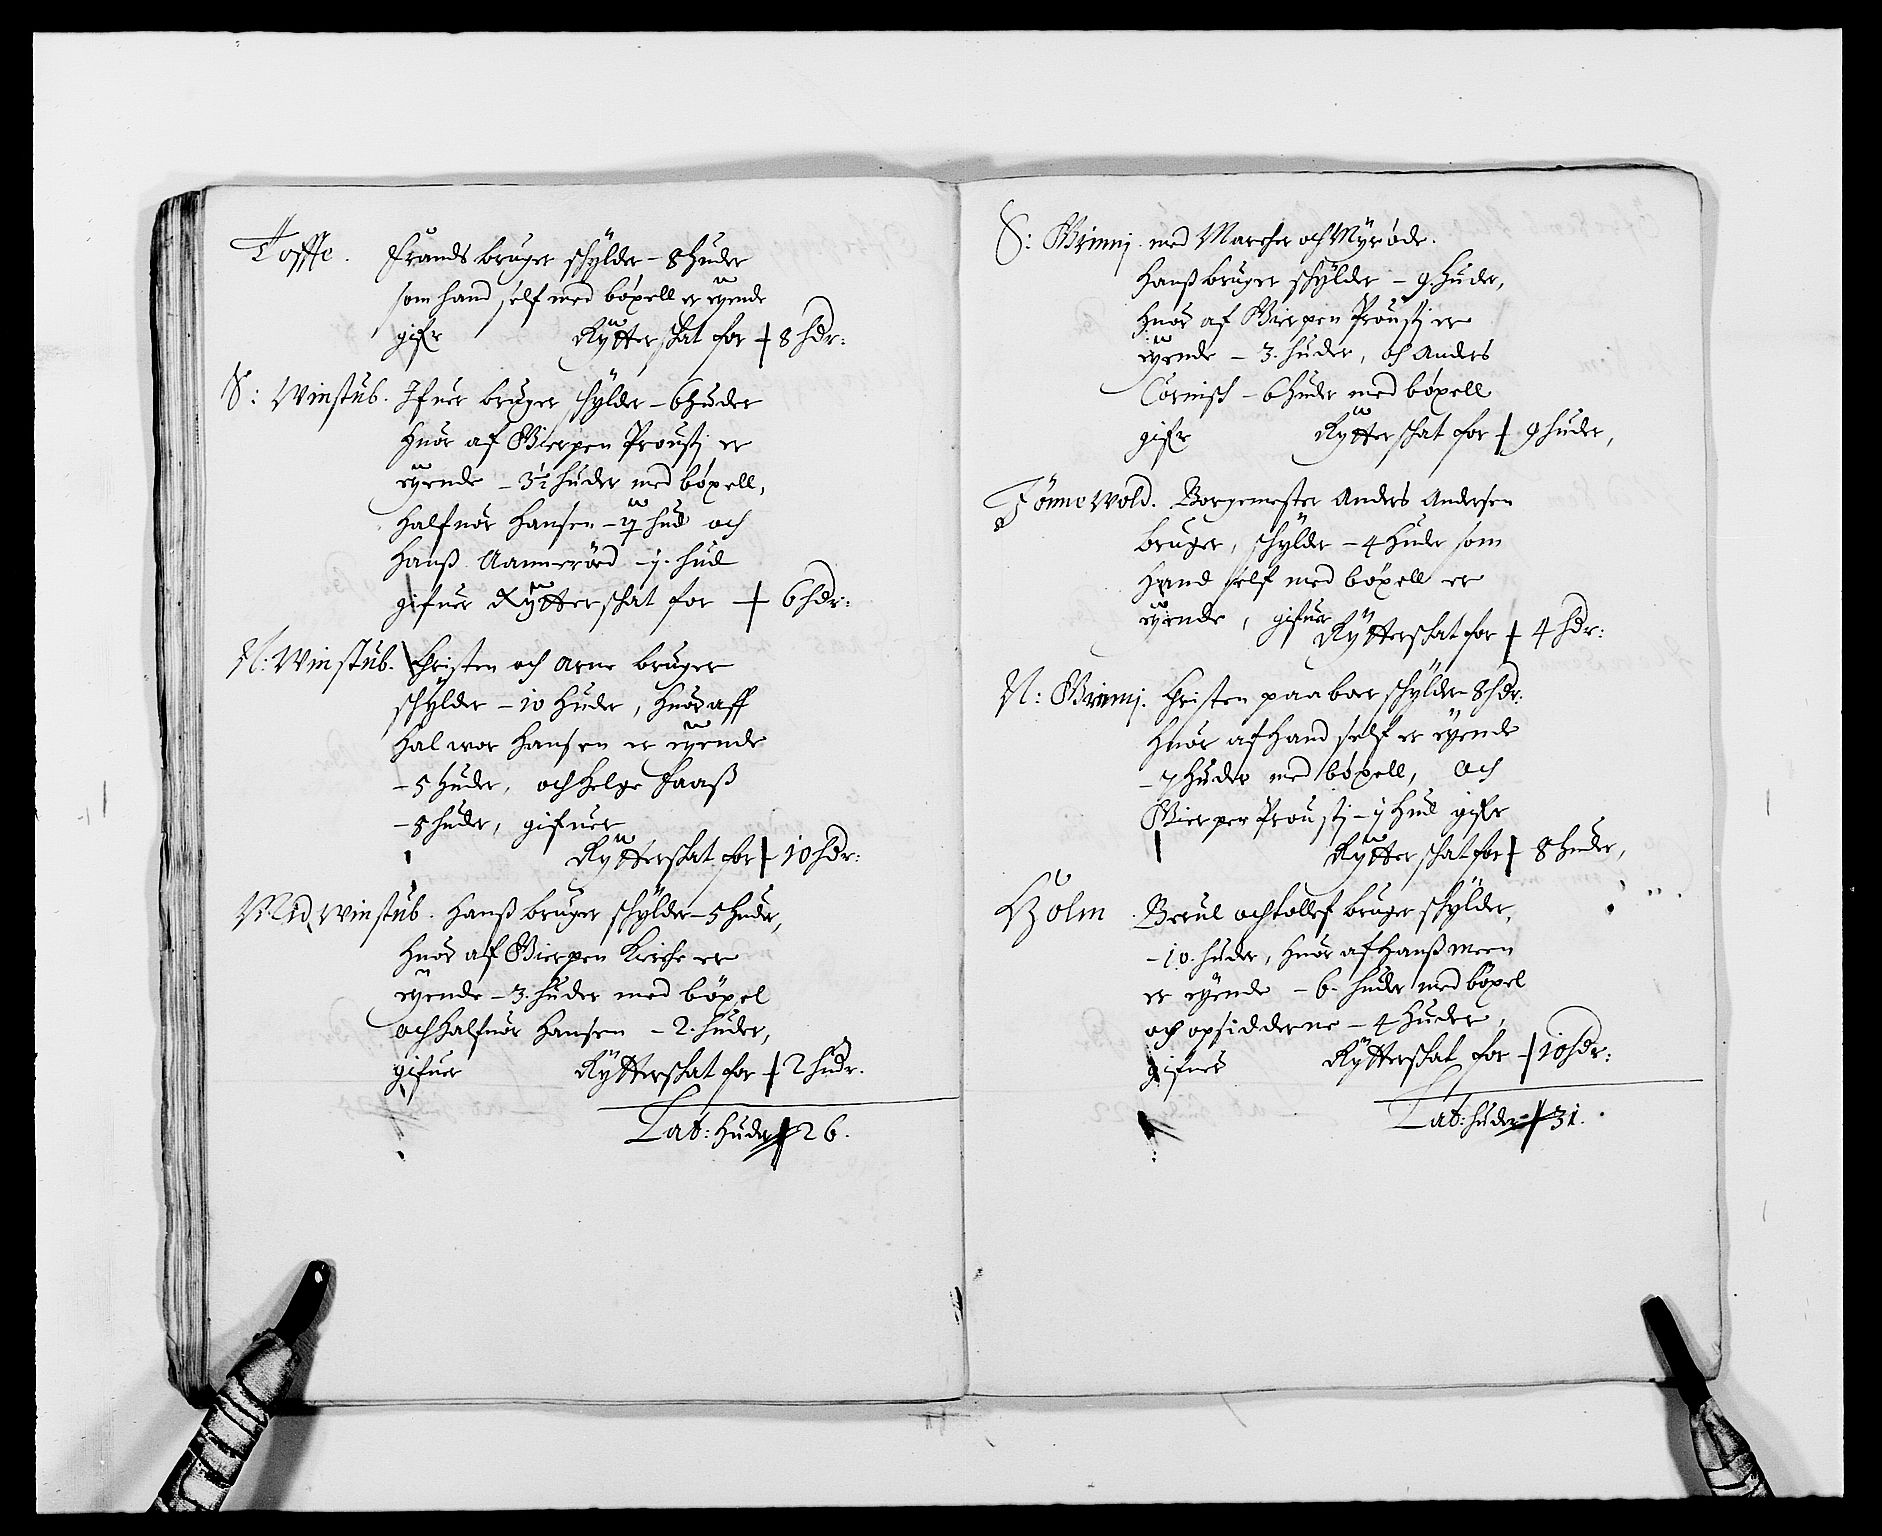 Toffte. Frands bruger schylder - 8 huder
som hand self med böxell er eyende
gifr Rytterschat for - 8 hdr:
S: Winstub. Ifuer bruger schylder - 6 huder
huor af Bierpen Proustj er
eyende - 3½ huder med böxell,
Halfuor Hansen - ½ hud och
Hanß Aannerröd - j. hud
gifuer Rytterschat for - 6 hdr:
N: Winstub. Christen och Arne bruger
schylder - 10 huder, huoraff
Halwor Hansen er eyende
- 5 huder, och Helge Faaß
- 5 huder, gifuer
Rytterschat for - 10 hdr:
Mid, Winstub. Hanß bruger schylder - 5 huder,
huor af Bierpen Kirche er
eyende - 3. huder med böxel
och Halfuor Hansen - 2. huder,
gifuer Rytterschat for - 2 hudr.
Lat: huder - 26.
S: Grimmj. med Marcher och Myröde.
Hanß bruger schylder - 9 huder,
huor af Bierpen Proustj er
eyende - 3. huder, och Anders
Cornisch - 6 huder med böxell
gifr Rytterschat for - 9 huder,
Tönnewold. Borgemester Anders Andersen
bruger, schylder - 4 huder som
hand self med böxell er
eyende, gifuer
Rytterschat for - 4 hdr:
N: Grimmj. Christen paaboer schylder 8 hdr:
huor af hand self er eyende
- 7 huder med böxell, och
Bierpen Proustj - j hud gifr
Rytterschat for - 8 huder,
Holm. Berul och Tollef bruger schylder,
- 10. huder, huor af Hanß Meen
er eyende - 6. huder med böxel
och opsidderne - 4 huder,
gifuer Rytterschat for - 10 hdr:
Lat: huder - 31.